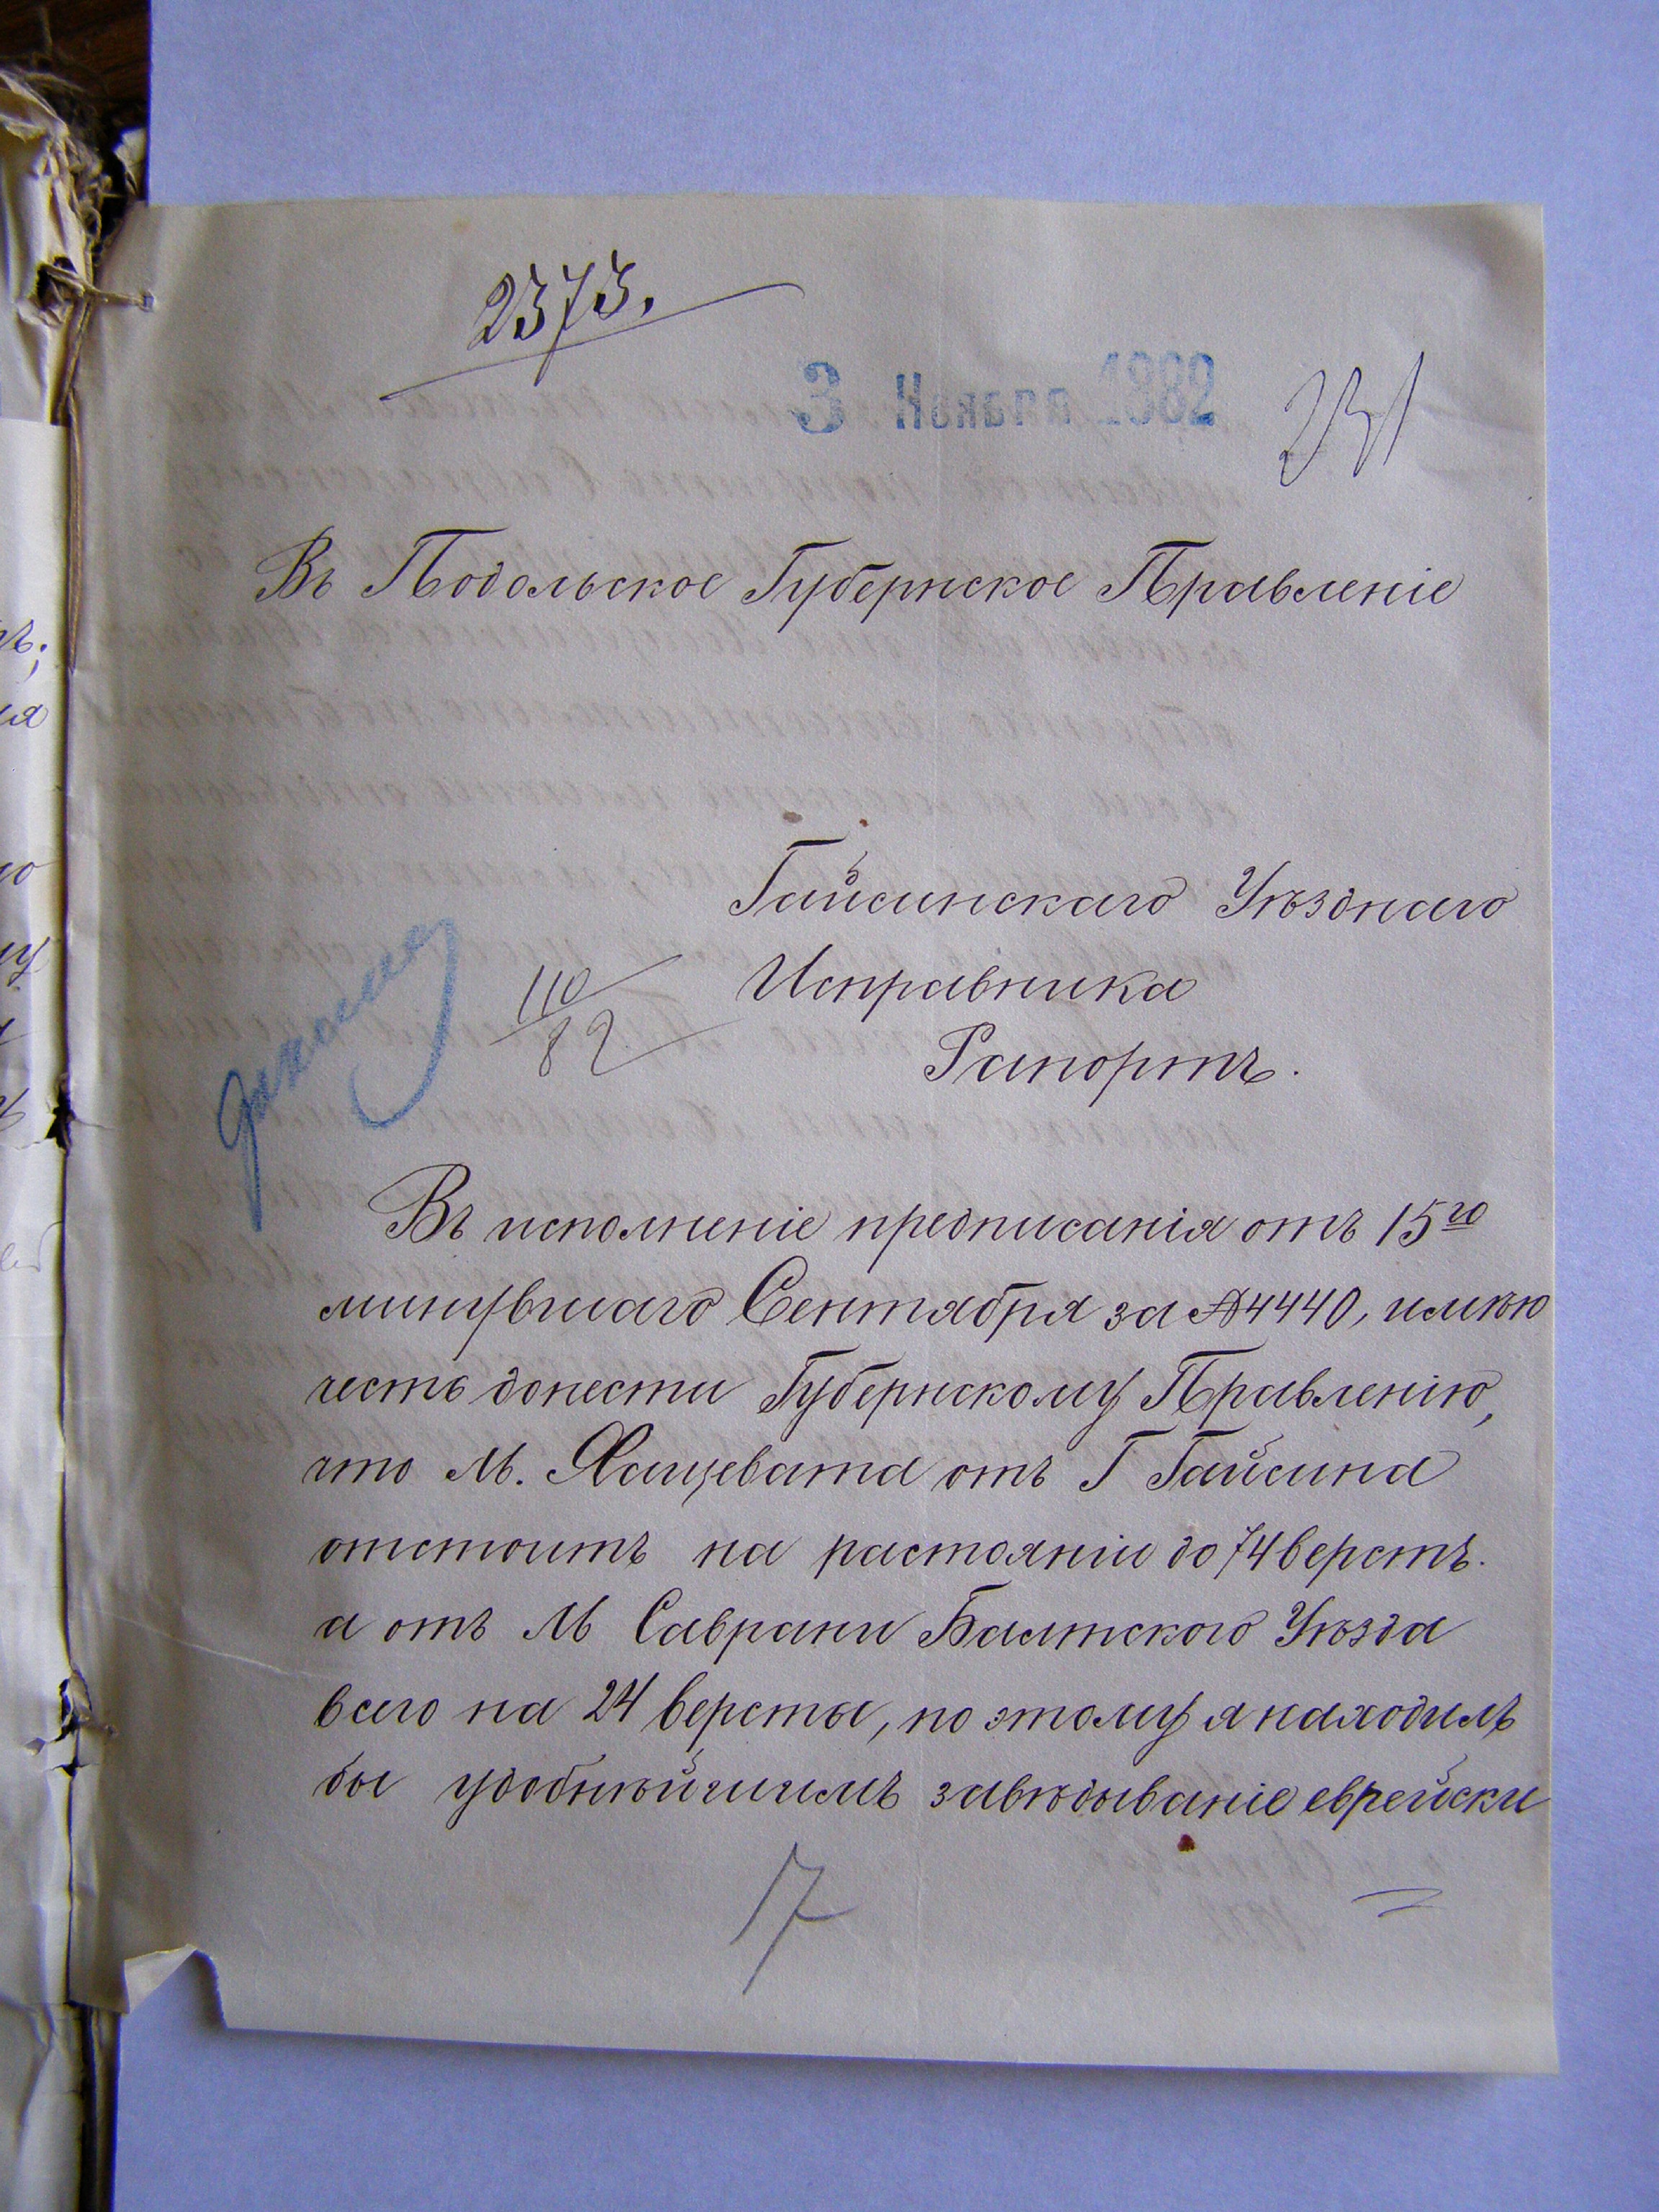 2373.
3 Ноября 1882
231
Въ Подольское Губернское Правленіе
Гайсинскаго Уѣзднаго
110
82
Исправника
Рапортъ.
Въ исполненіе предписанія отъ 15го
минувшаго Сентября за № 4440, имѣю
честь донести Губернскому Правленію,
что М. Хащевата отъ Г Гайсина
отстоитъ на растояніи до 74 верстъ.
а отъ М Саврани Балтского Уѣзда
всего на 24 версты, по этому я находилъ
бы удобнѣйшимъ завѣдываніе еврейски
17